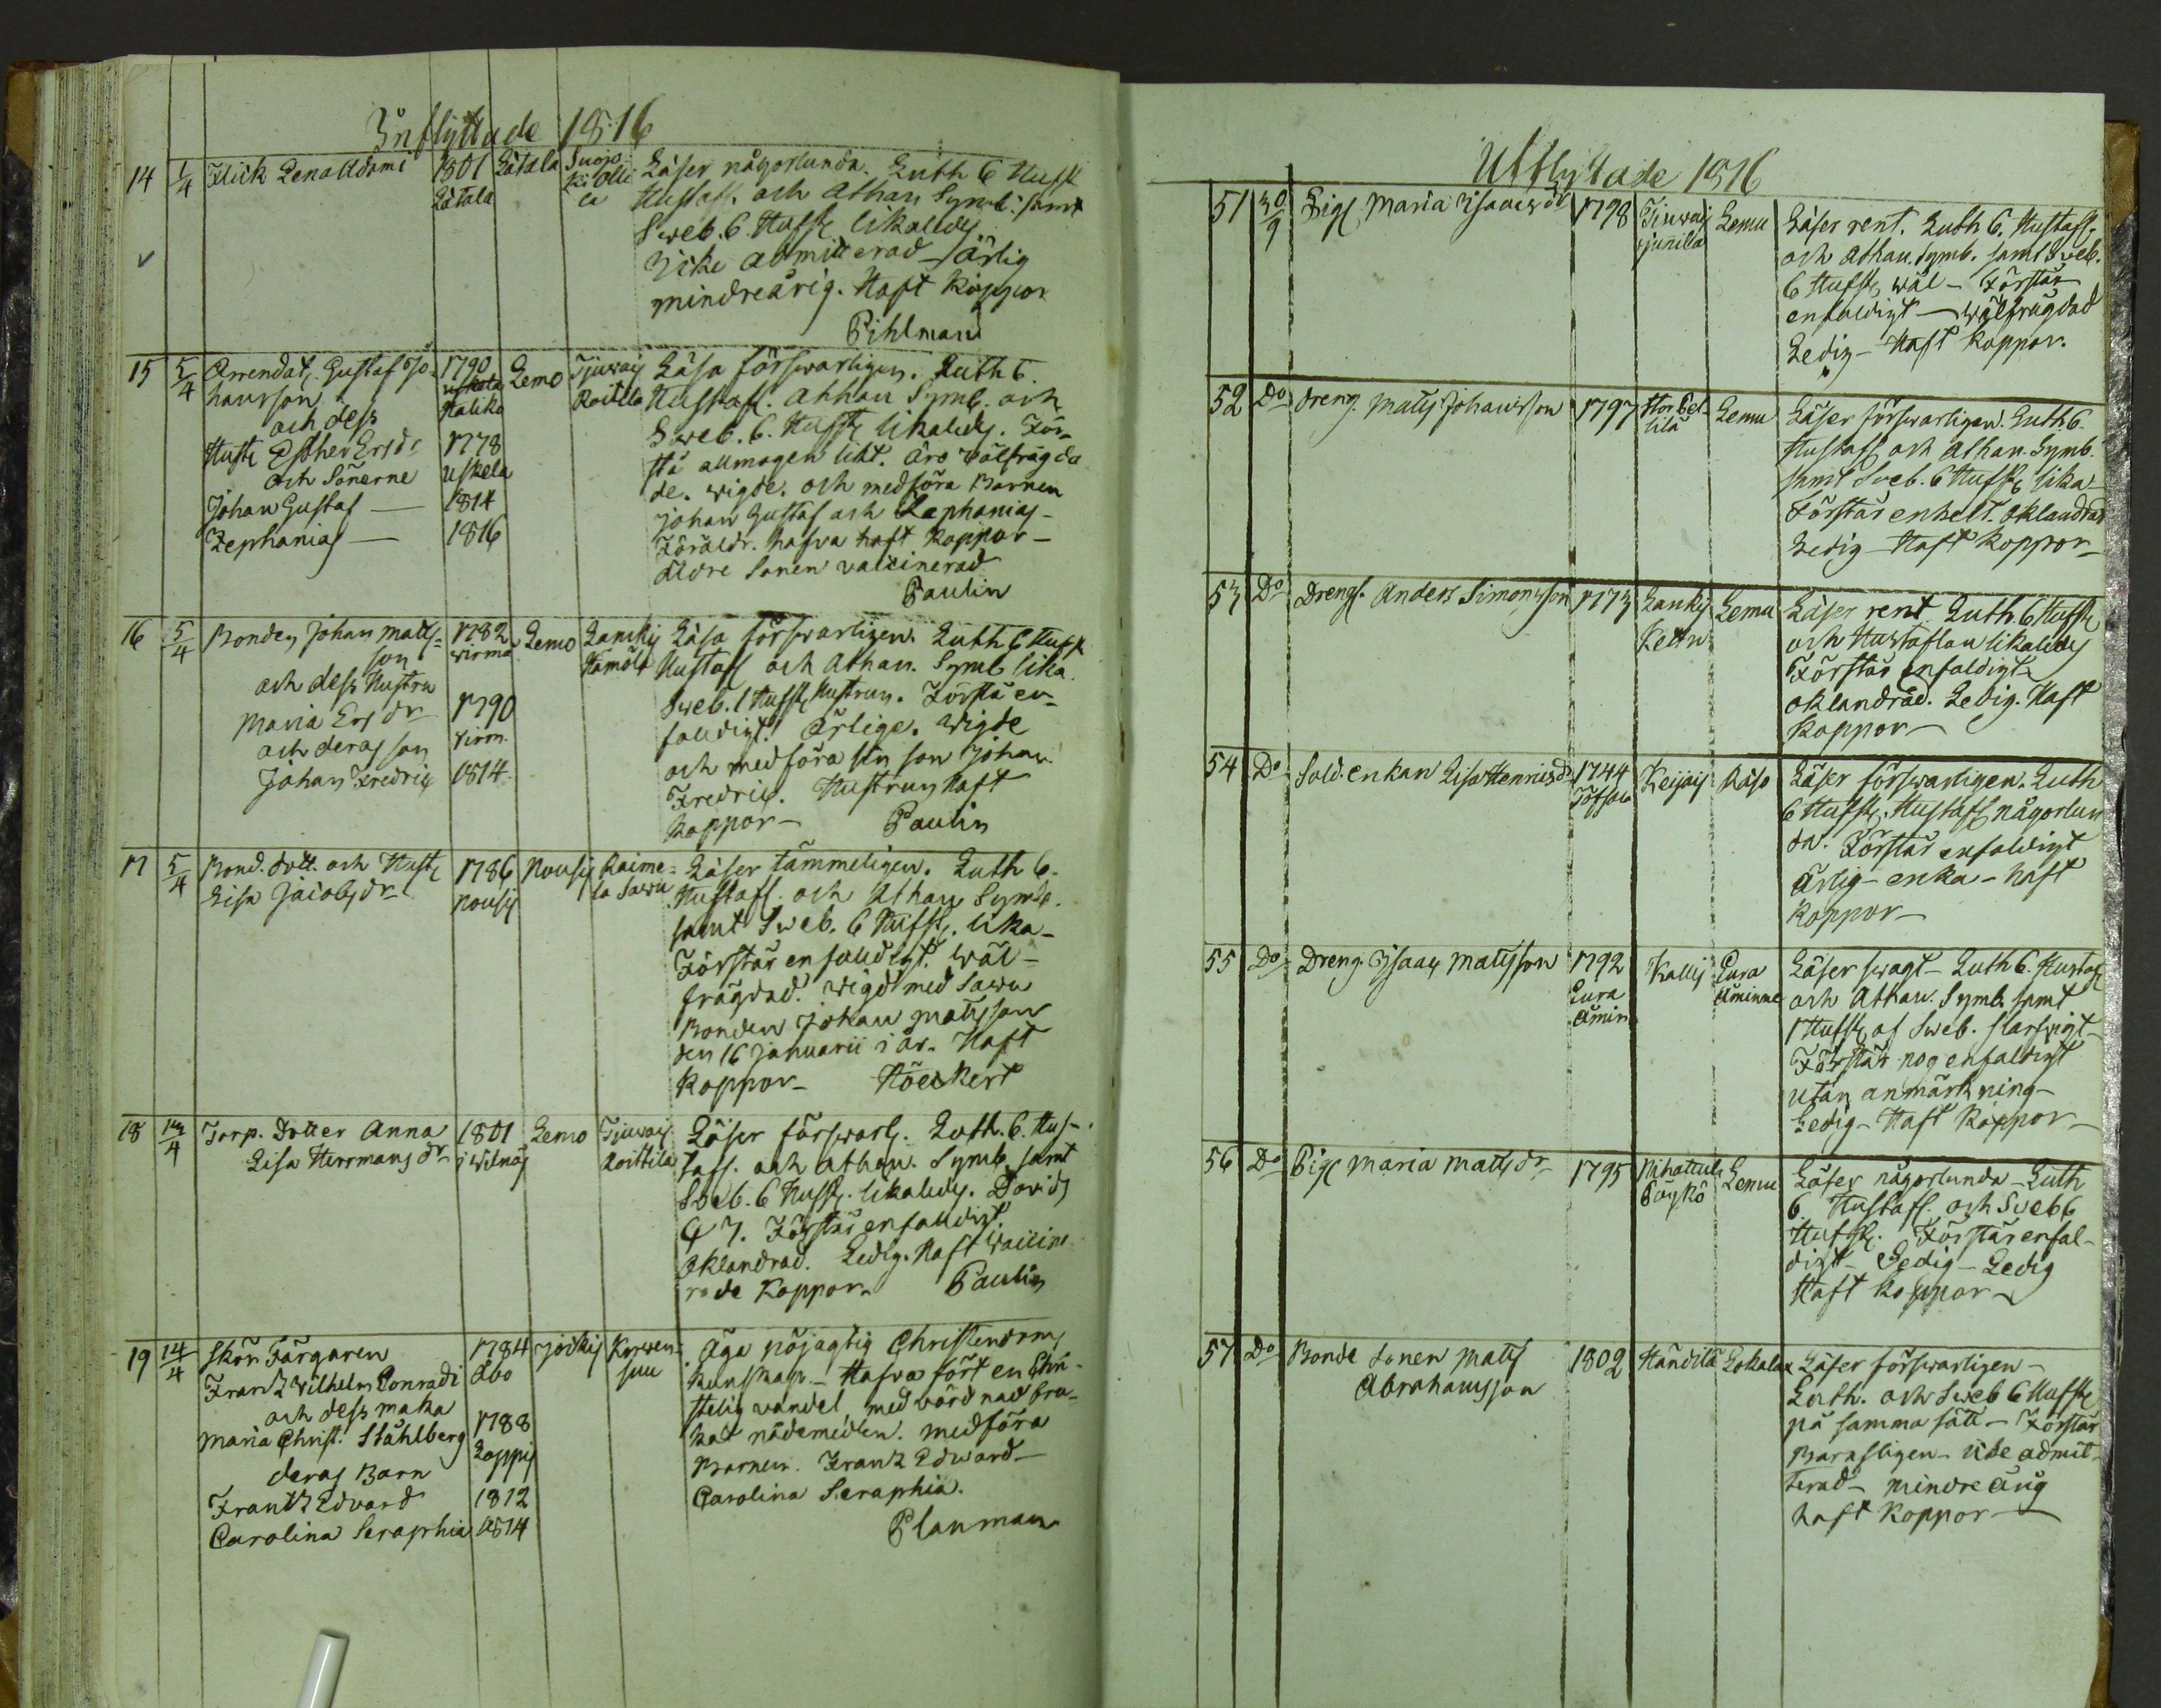 Inflyttade 1816
14 1/4 Flick. Lena Adami 1801 Lätala Lätala Suojoki Olli
Läser någorlunda. Luth 6 Hufst
Hustafl. och Athan Symb: samt
Sveb. 6. Hufst likaledes
Icke admitterad - ärlig
mindreårig. Haft koppor
Pihlman
15 5/4 Arrendat. Gustaf Jo- 1790 Lemo Tjuwais
hansson Haliko Koitila
och dess
Hust Esther Ersdr 1778
och Sönerne Uskela
Johan Gustaf — 1814
Zephanias — 1816
Läsa försvarligen. Luth 6.
Hustafl. Athan Symb. och
Sveb. 6. Hufst likaledes. För-
stå allmogen likt. äro välfrägda
de. wigde. och medföra Barnen
Johan Gustaf och Zephanias -
Föräldr. hafva haft koppor -
äldre Sonen vaccinerad
Paulin
16 5/4 Bonden Johan Matts= 1782 Lemo Lankis
son Wirmo
och dess Hustru
Maria Ersdr 1790
och deras son Virm.
Johan Fredric 1814
Läsa försvarligen. Luth 6 Hufst
Hustafl och Athan. Symb lika
Sveb. 1 Hufst Hustrun. Förstå en-
faldigt. ärlige. wigde
och medföra sin son Johan
Fredric. Hustrun haft
koppor - Paulin
17 5/4 Bond. dott. och Hust 1786 Nousis Kaime=
Lisa Jacobsdr Nousis la Sawu
Läser tämmeligen. Luth 6.
Hustafl. och Athan Symb.
samt Sveb. 6 Hufst. lika -
Förstår enfaldigt. wäl-
frägdad. wigd med Sawu
Bonden Johan Matsson
den 16 Januarii i år. Haft
koppor - Höckert
18 13/4 Torp. Dotter Anna 1801 Lemo Tjuwais
Lisa Hermansdr i Wilnäs Koittila
Läser försvarl. Luth. 6. Hus-
tafl. och Athan. Symb. samt
Sveb. 6 Hufst. likaledes. Davids
Ψ 7. Förstår enfaldigt.
Oklandrad. Ledig. Haft waccine
rade koppor - Paulin
19 14/4 Skön Färgaren 1784 Jockis
Frantz Wilhelm Conradi Åbo
och dess maka
Maria Christ. Ståhlberg 1788
deras Barn Loppis
Frantz Edvard 1812
Carolina Seraphia 1814
Äga nöjagtig Christendoms
kunskap - Hafva fört en Chri-
stelig vandel, med vördnad bru-
kat nådemedlen. medföra
Barnen. Frantz Edward -
Carolina Seraphia.
Planman
Utflyttade 1816
51 30/9 Pig. Maria Isaacsdr 1798 Tjuwais Junnila Lemu
Läser rent. Luth 6. Hustafl.
och Athan. Symb. samt Sveb.
6 Hufst wäl - Förstår
enfaldigt - wälfrägdad
Ledig - Haft koppor.
52 Do Dreng. Mats Johansson 1797 Lemu
Läser försvarligen. Luth 6.
Hustafl och Athan. Symb.
samt Sveb. 6 Hufst lika -
Förstår enkelt. Oklandrad
Ledig - Haft koppor -
53 Do Drengs. Anders Simonsson 1773 Lankis Lemu
Läser rent Luth. 6 Hufst
och Hustaflan likaledes
Förstår enfaldigt -
oklandrad. Ledig. Haft
koppor -
54 Do Sold. enkan Lisa Henricsdr 1744 Keijais Raso
Töfsala
Läser försvarligen. Luth
6 Hufst. Hustafl någorlun
da. Förstår enfaldigt
Ärlig - enka - haft
koppor -
55 Do Dreng Isaac Mattsson 1792 Kallis Eura
Eura Åminne
Åmin
Läser svagt - Luth 6. Hustafl
och Athan. Symb. samt
1 Hufst af Sveb. slarfvigt
Förstår nog enfaldigt
utan anmärkning -
Ledig - Haft koppor -
56 Do Pig Maria Mattsdr 1795 Nihattula Lemu
Läser någorlunda - Luth
6. Hustafl. och Sveb 6
Hufst. Förstår enfal-
digt - Ledig - Ledig
Haft koppor -
57 Do Bonde Sonen Matts 1802 Händilä Lokalax
Abrahamsson
Läser försvarligen -
Luth. och Sveb 6 Hufst
på samma sätt - Förstår
Barnsligen - icke admit-
terad - mindre årig
haft koppor —